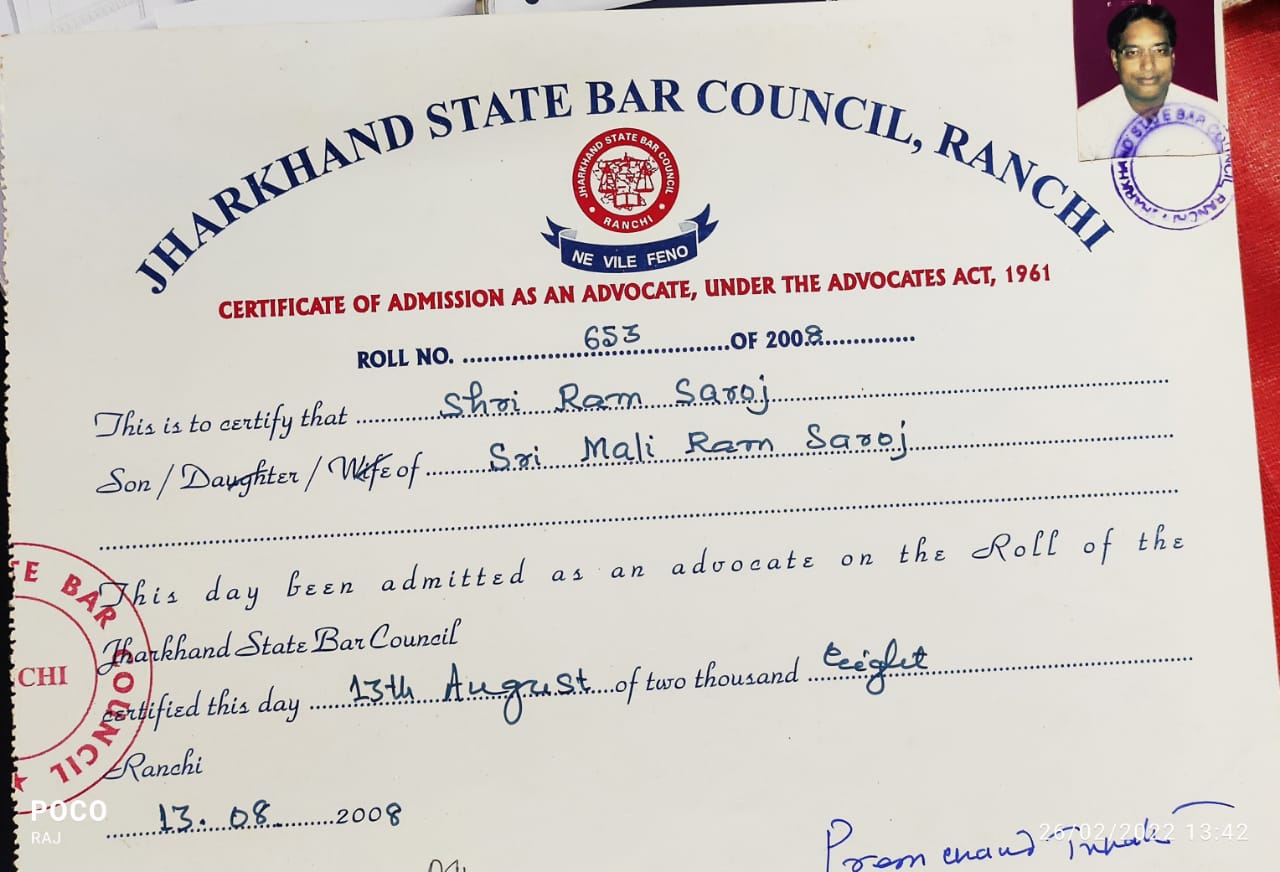 JHARKHAND STATE BAR COUNCIL, RANCHI
JHARKHAND STATE BAR COUNCIL
RANCHI
NE VILE FENO
STATE BAR COUNCIL, RANCHI
CERTIFICATE OF ADMISSION AS AN ADVOCATE, UNDER THE ADVOCATES ACT, 1961
ROLL NO. 653 OF 2008
This is to certify that Shri Ram Saroj
Son / Daughter / Wife of Sri Mali Ram Saroj
This day been admitted as an advocate on the Roll of the
Jharkhand State Bar Council
certified this day 13th August of two thousand Eeight
Ranchi
13. 08. 2008
TE BAR COUNCIL
CHI
POCO
RAJ
Prem chand
26/02/2022 13:42